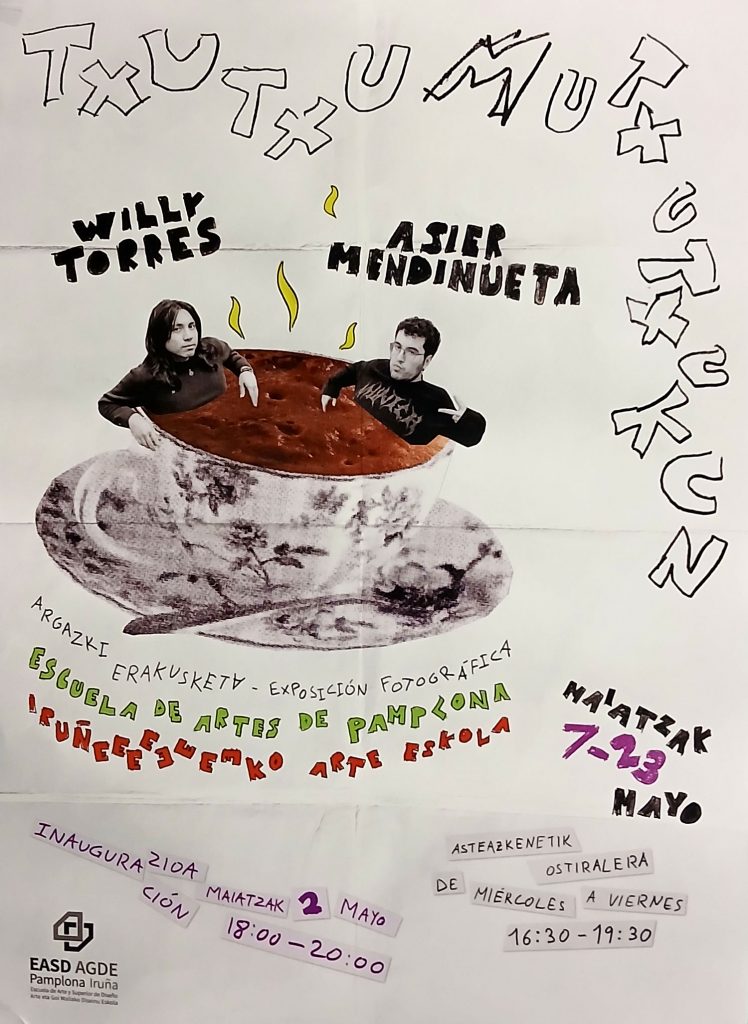 TXUTXUMUTXUTXUKUZ
WILLY
TORRES
ASIER
MENDINUETA
ARGAZKI ERAKUSKETA - EXPOSICIÓN FOTOGRÁFICA
ESCUELA DE ARTES DE PAMPLONA
ARTE ESKOLA
MAIATZAK
7-23
MAYO
INAUGURAZIOA
CIÓN
MAIATZAK 2 MAYO
18:00-20:00
ASTEAZKENETIK
OSTIRALERA
DE MIÉRCOLES A VIERNES
16:30-19:30
EASD AGDE
Pamplona Iruña
Escuela de Arte y Superior de Diseño
Arte eta Goi Mailako Diseinu Eskola